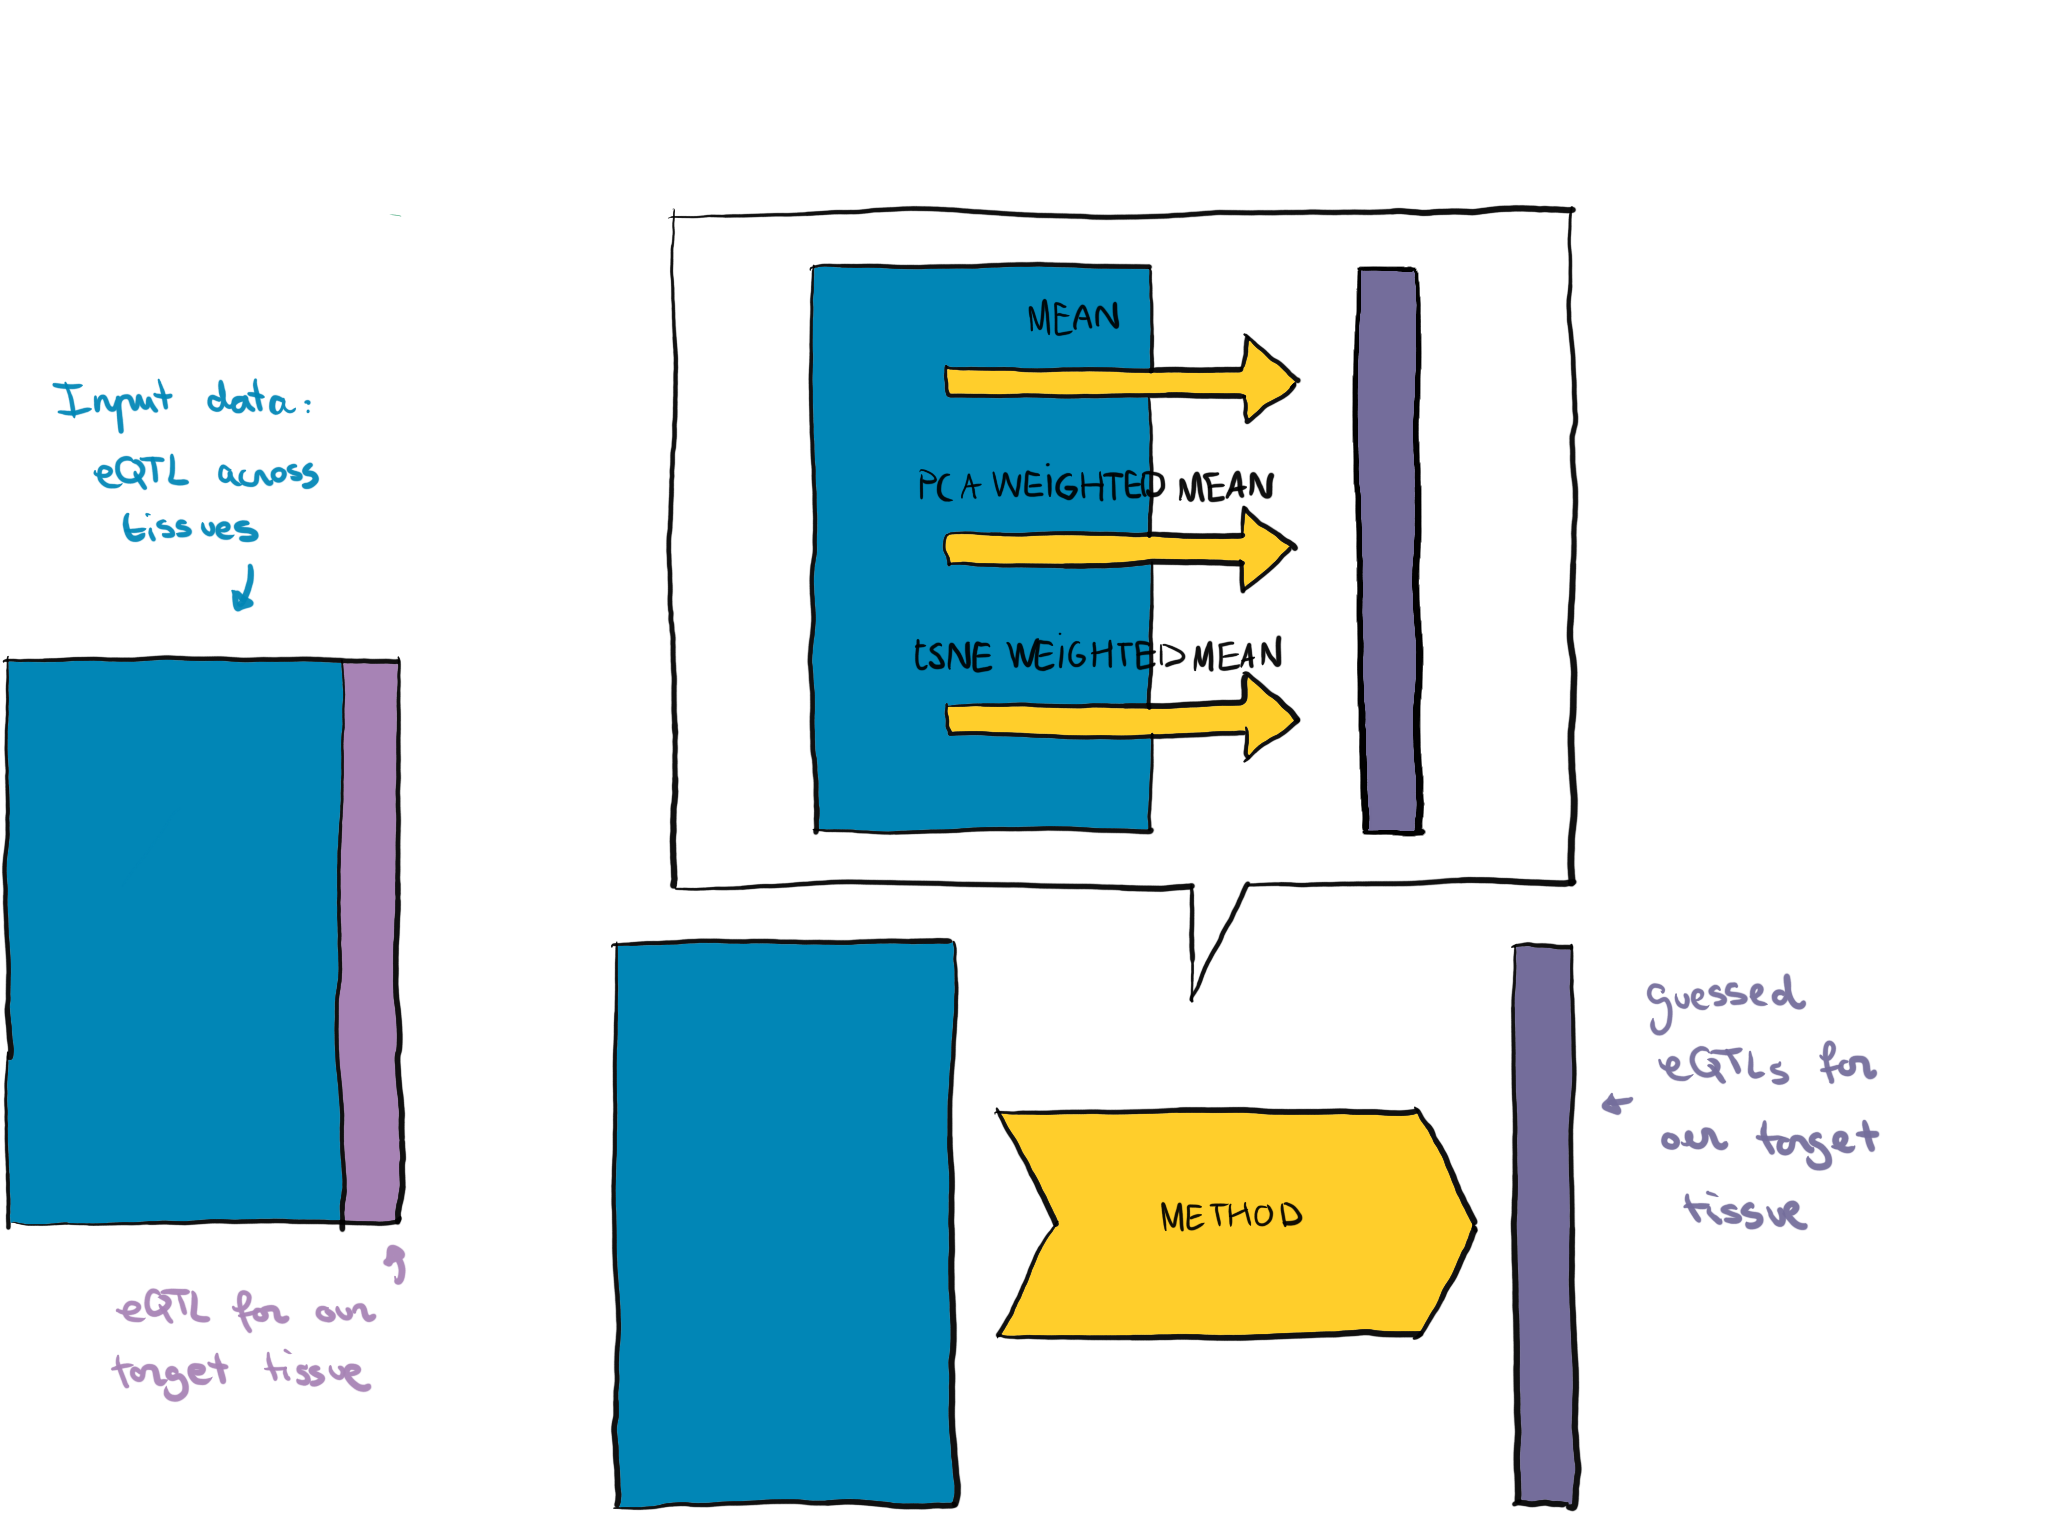 Input data:
eQTL across
tissues
eQTL for our
target tissue
MEAN
PCA WEIGHTED MEAN
tSNE WEIGHTED MEAN
METHOD
guessed
eQTLs for
our target
tissue